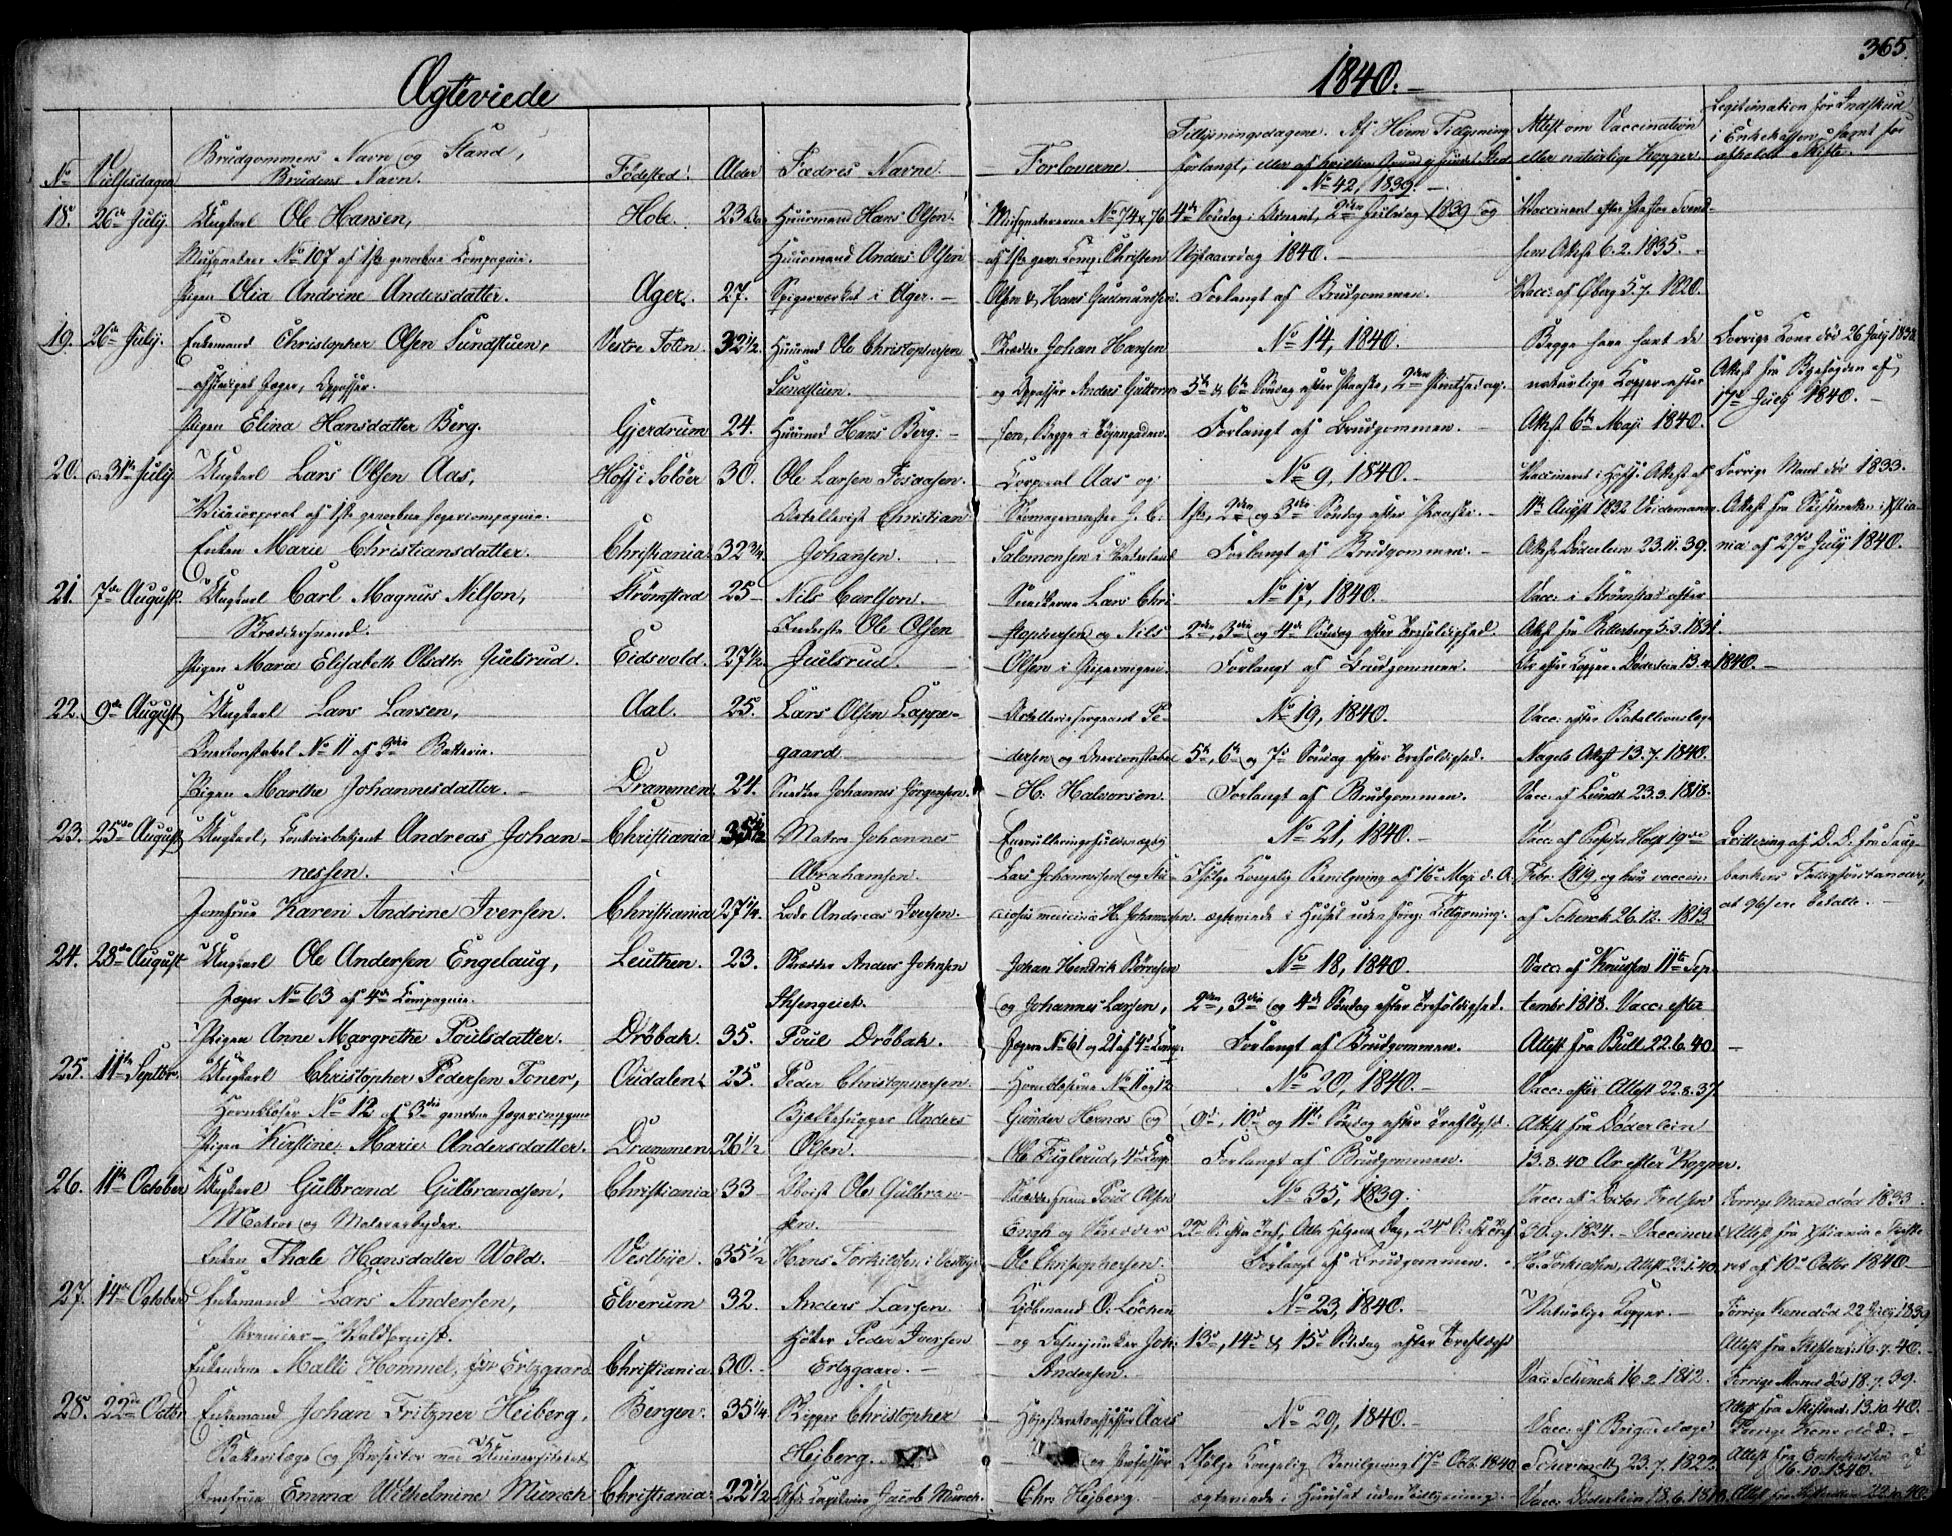 365.
Ægteviede
1840.
No
Vielsesdagen
Brudgommens Navn og Stand,
Brudens Navn.
Fødested.
Alder
Fædres Navne.
Forloverne.
Tillysningsdagene. Af Hvem Tillysning
forlangt, eller af hvilken Grund
Attest om Vaccination
eller naturlige Kopper
Legitimation for Indskud
i Enkekassen samt for
afholdt Skifte.
No 42, 1839.
18. 26de July Ungkarl Ole Hansen, Hole. 23 Huusmand Hans Olsen Musqueterne No 74 & 76 4de Søndag i Advent, 2den Juledag 1839 og Vaccineret efter Svend-
Musqueteer No 107 af 1ste genvorbne Compagnie. Huusmand Anders Olsen af 1ste gev. Comp. Christen Nytaarsdag 1840. sens Attest 6.2.1835.
Pigen Olia Andrine Andersdatter. Ager. 27. Spigerverket i Ager. Olsen & Hans Gudmundsen. Forlangt af Brudgommen. Vacc. af Øberg 5.7.1820.
19. 26de July. Enkemand Christopher Olsen Sundstuen, Vestre Totn. 32 1/2. Huusmd Ole Christophersen Johan Hansen No 14, 1840. Begge have havt de Forrige Kone død 26 July 1838.
afskediget Jæger, Opasser. Sundstuen. og Opasser Anders Guttorm- 5te & 6te Søndag efter Paaske, 2den Pintsedag. naturlige Kopper efter Attest fra Byefogden af
17de July 1840.
Pigen Elina Hansdatter Berg. Gjerdrum 24. Huusmd Hans Berg. sen, Begge i Forlangt af Brudgommen. Attest 6te Maji 1840.
20. 31te July Ungkarl Lars Olsen Aas, Hoff i Solöer 30. Ole Larsen Corporal Aas og No 9, 1840. Vaccineret i Hoff. Attest af Forrige Mand død 1833.
Vicecorporal af 1ste genvorbne Jægercompagnie. Artellerist Christian Skomagermester 1ste, 2den og 3die Søndag efter Paaske. 11te August 1832 Attest fra Skifteretten i Xtia-
Enken Marie Christiansdatter. Christiania 32 3/4. Johansen. Salomonsen i Forlangt af Brudgommen. Attest Döderlein 23.11.39. nia af 27de July 1840.
21. 7de August. Ungkarl Carl Magnus Nilson, Strømstad 25 Nils Carlson. Snedkerne Lars Chri- No 17, 1840. Vacc. i Strømstad efter
Skræddersvend. Inderste Ole Olsen stophersen og Nils 2den, 3die og 4de Søndag efter Trefoldighed. Attest fra Retterberg 5.3.1831.
Pigen Maria Elisabeth Olsdtr Juelsrud. Eidsvold. 27 1/2. Juelsrud. Olsen i Forlangt af Brudgommen. Ar efter Kopper. Döderlein 13. 1840.
22. 9de August Ungkarl Lars Larsen, Aal. 25. Lars Olsen Lappe- Artelleriesergeant Pe- No 19, 1840. Vacc. efter Batallionslæge
No 11 af 3die Batterie. gaard. dersen og 5te, 6te og 7de Søndag efter Trefoldighed. Nagels Attest 13.7.1840.
Pigen Marthe Johannesdatter. Drammen. 24. Snedker Johannes Jørgensen. H. Halvorsen. Forlangt af Brudgommen. Vacc. af Lundt 23.3.1818.
23. 25de August Ungkarl, Contoirbetjent Andreas Johan- Christiania 35 1/2 Matros Johannes No 21, 1840. Vacc. af Professor Holst 19de Qvittering af
nessen. Abrahamsen. Lars Johannesen og Stu- Ifølge Kongelig Bevilgning af 16de Maji d. A. Febr. 1819, og hun vaccin.
Jomfrue Karen Andrine Iversen. Christiania 27 1/4. Lods Andreas Iversen. diosus medicinæ H. Johannesen. ægteviede i Huset uden Tillysning. af Schenck 26.12.1813 betalte.
24. 28de August Ungkarl Ole Andersen Engelaug, Leuthen. 23. Skrædder Anders Johnsen Johan Hendrik Børresen No 18, 1840. Vacc. af Knudsen 11te Sep-
Jæger No 63 af 4de Compagnie. og Johannes Larsen, 2den, 3die og 4de Søndag efter Trefoldighed. tember 1818. Vacc. efter
Pigen Anne Margrethe Poulsdatter. Drøbak. 35. Poul Drøbak. Jægere No 61 og 21 af 4de Comp. Forlangt af Brudgommen. Attest fra Bull 22.6.40.
25. 11te Septbr. Ungkarl Christopher Pedersen Toner, Oudalen. 25. Peder Christophersen. Hornblæserne No 11 og 12 No 20, 1840. Vacc. efter Attest 22.8.37.
Hornblæser No 12 af 3die genvorbne Jægercompagnie Bjelkehugger Anders Gunder Hernæs og 9de, 10de og 11te Søndag efter Trefoldighed. Attest fra Döderlein
Pigen Kirstine Marie Andersdatter. Drammen. 26 1/2 Olsen. Ole Fuglerud, 4de Comp. Forlangt af Brudgommen. 13.8.40 Ar efter Kopper.
26. 11te October Ungkarl Gulbrand Gulbrandsen, Christiania 33 Ole Gulbran- Poul Olsen No 35, 1839. Vacc. af Doctor Forrige Mand død 1833.
Matros og Malerarbejder. sen. Engh og Skrædder 22de S. efter Tref., Alle Helgens Dag, 24de S. eft. Tref. 30.9.1824. Vaccineret Attest fra Xtiania Skifte-
Enken Thale Hansdatter Wold. Vestbye. 35 1/2 Hans Torkildsen i Vestbye Ole Christophersen. Forlangt af Brudgommen. Attest 22.1.40. ret af 10de Octbr 1840.
27. 14de October Enkemand Lars Andersen, Elverum 32. Anders Larsen Kjøbmand O. Løchen No 23, 1840. Naturlige Kopper. Forrige Kone død 22 July 1839
Premier-Waldhornist. Høker Peder Iversen og Fahnejunker Joh. 13de, 14de & 15de Søndag efter Trefoldighed Attest fra Skifteret. 16.7.40.
Enkemadame Malli Hommel, før Ertzgaard Christiania. 30. Ertzgaard. Andersen. Vacc. Schenck 16.2.1812. Forrige Mand død 18.7.39.
Attest fra Skifteret. 13.10.40.
28. 22de Octbr. Enkemand Johan Fritzner Heiberg, Bergen. 35 1/4 Skipper Christopher Høiesteretsassessor No 29, 1840. Vacc. af Brigadelæge Forrige Kone død.
Batterilæge og Prosector ved Universitetet Hejberg. og Professor Ifølge Kongelig Bevilgning 17de Octb. 1840 23.7.1822. Attest fra Enkekassen af
16.10.1840.
Jomfrue Emma Wilhelmine Munch Christiania. 22 1/2 Capitain Jacob Munch. Chr. Hejberg. ægteviede i Huuset uden Tillysning. Vacc. Döderlein 18.6. Attest fra Skifteretten 22.10.40.